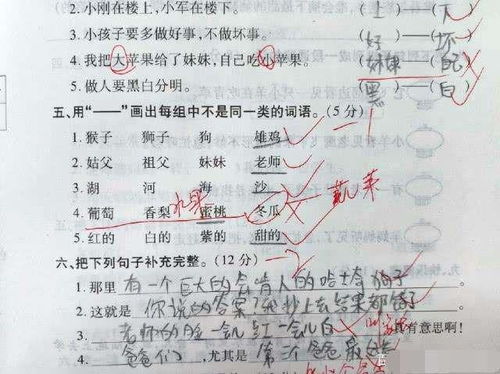 2. 小刚在楼上,小军在楼下。 (上)——(下)
3. 小孩子要多做好事,不做坏事。 (好)——(坏)
4. 我把大苹果给了妹妹,自己吃小苹果。 (妹妹)——(自己)
5. 做人要黑白分明。 (黑)——(白)
五、用“——”画出每组中不是同一类的词语。(5 分) -1
1. 猴子 狮子 狗 雄鸡
2. 姑父 祖父 妹妹 老师
3. 湖 河 海 沙
水果 蔬菜
4. 葡萄 香梨 蜜桃 冬瓜
5. 红的 白的 紫的 甜的
六、把下列句子补充完整。(12 分)
1. 那里有一个巨大的会啃人的哈士奇狗子
2. 这就是你说的答案,我抄上去结果都错了
3. 老师的脸一会儿红一会儿白 真有意思啊!
4. 爸爸们,尤其是第一个爸爸最